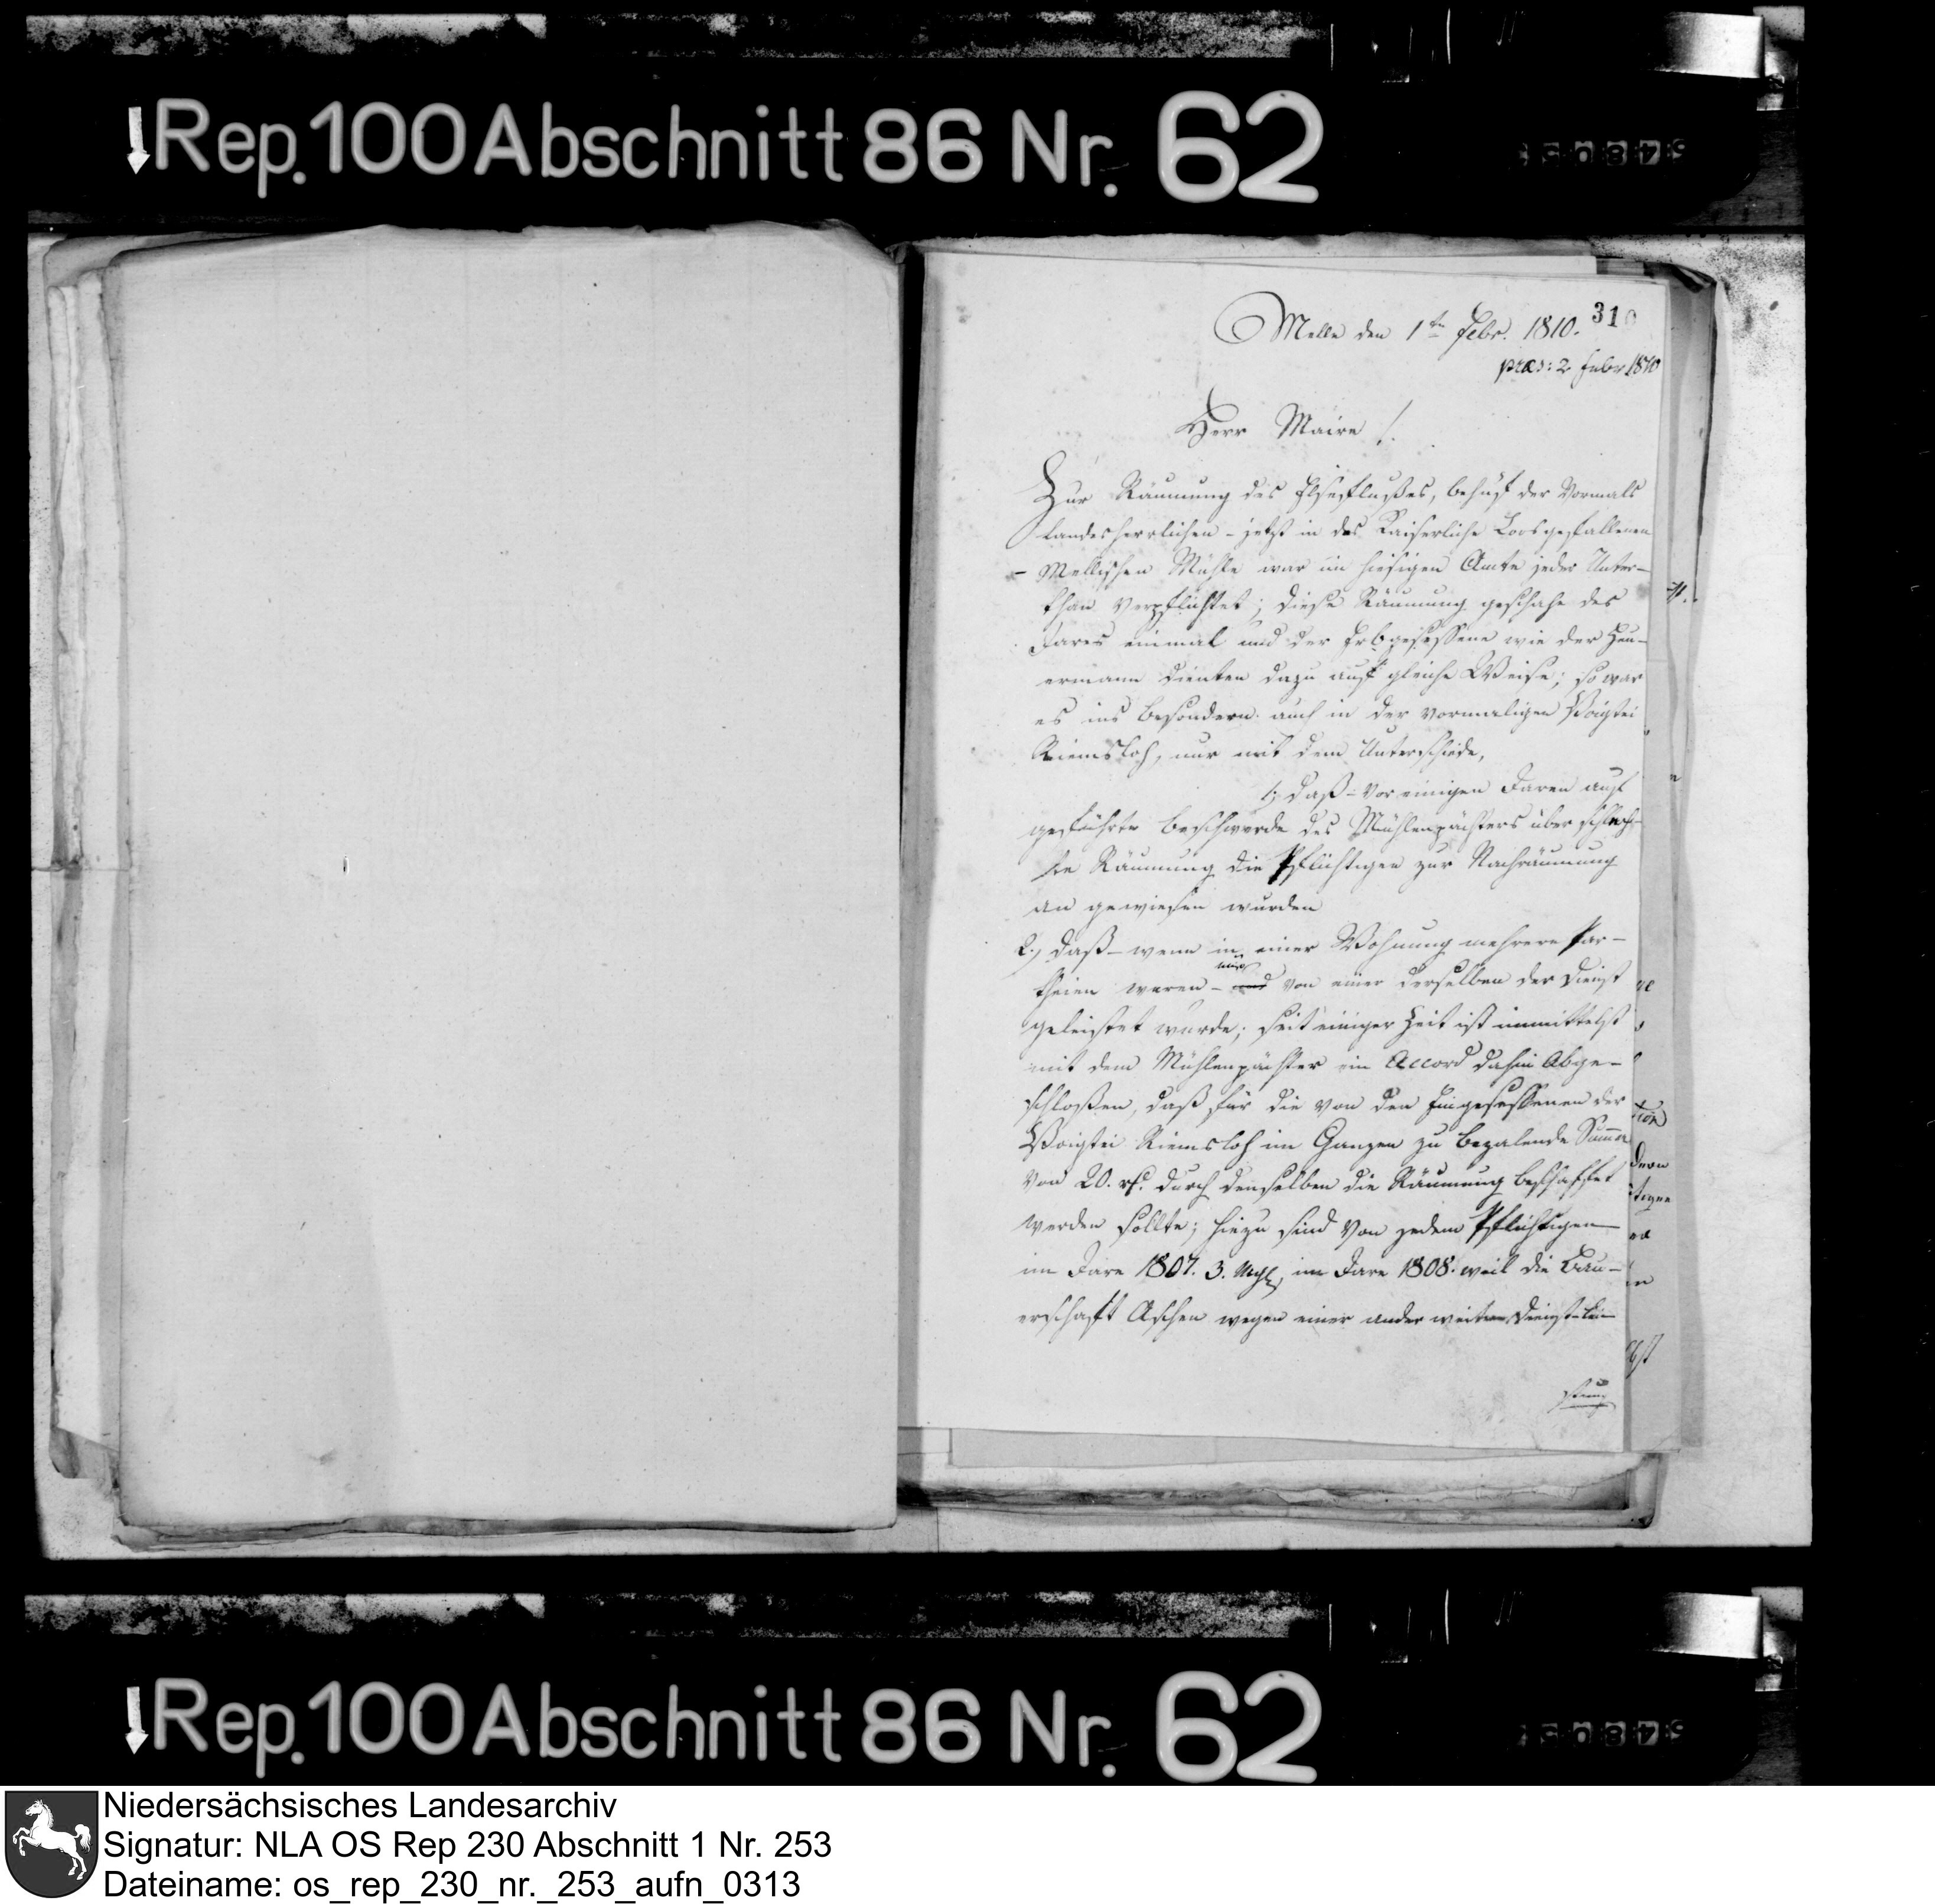 Rep. 100 Abschnitt 86 Nr. 62
310
Melle den 1ten Febr. 1810.
praes: 2 Febr 1810
Herr Maire!
Zur Räumung des Elseflußes, behuf der vormals
landesherrlichen - jetzt in das Kaiserliche Loos gefallenen
- Mellischen Mühle war im hiesigen Amte jeder Unter-
than verpflichtet; diese Räumung geschahe des
Jares einmal und der Erbgesessene wie der Heu-
ermann dienten dazu auf gleiche Weise; so war
es ins besondern auch in der vormaligen Voigtei
Riemsloh, nur mit dem Unterschiede,
1, daß - vor einigen Jaren auf
geführte Beschwerde des Mühlenpächters über schlech-
te Räumung die Pflichtigen zur Nachräumung
an gewiesen wurden
2.) daß - wenn in einer Wohnung mehrere Par-
nur
theien waren - und von einer derselben der Dienst
geleistet wurde; seit einiger Zeit ist inmittelst
mit dem Mühlenpächter ein Accord dahin abge-
schloßen, daß für die von den Eingesessenen der
Voigtei Riemsloh im Ganzen zu bezalende Summe
von 20. rf. durch denselben die Räumung beschaffet
werden sollte; hiezu sind von jedem Pflichtigen
im Jare 1807. 3. Mgl, im Jare 1808. weil die Bau-
erschaft Aschen wegen einer ander weiten Dienst-lei-
stung
Rep. 100 Abschnitt 86 Nr. 62
Niedersächsisches Landesarchiv
Signatur: NLA OS Rep 230 Abschnitt 1 Nr. 253
Dateiname: os_rep_230_nr._253_aufn_0313